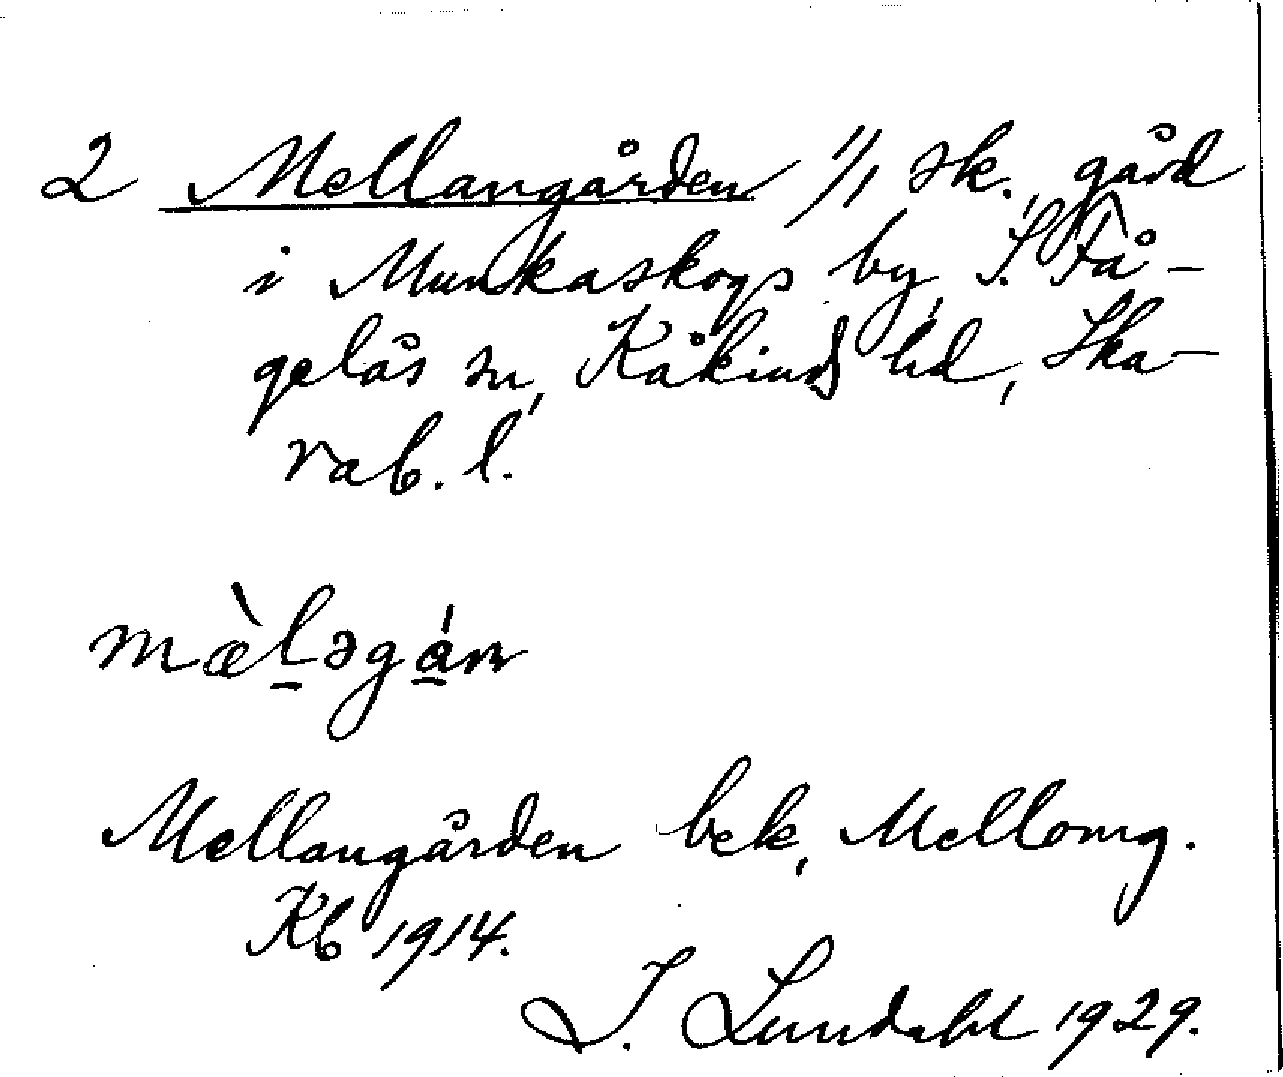 2 Mellangården 1/1 sk., gård
i Munkaskogs by, S. Få-
gelås sn, Kåkinds hd, Ska-
rab. l.
mæ̀l̠əgá̠ɴ
Mellangården bek, Mellomg.
Kb 1914.
I. Lundahl 1929.